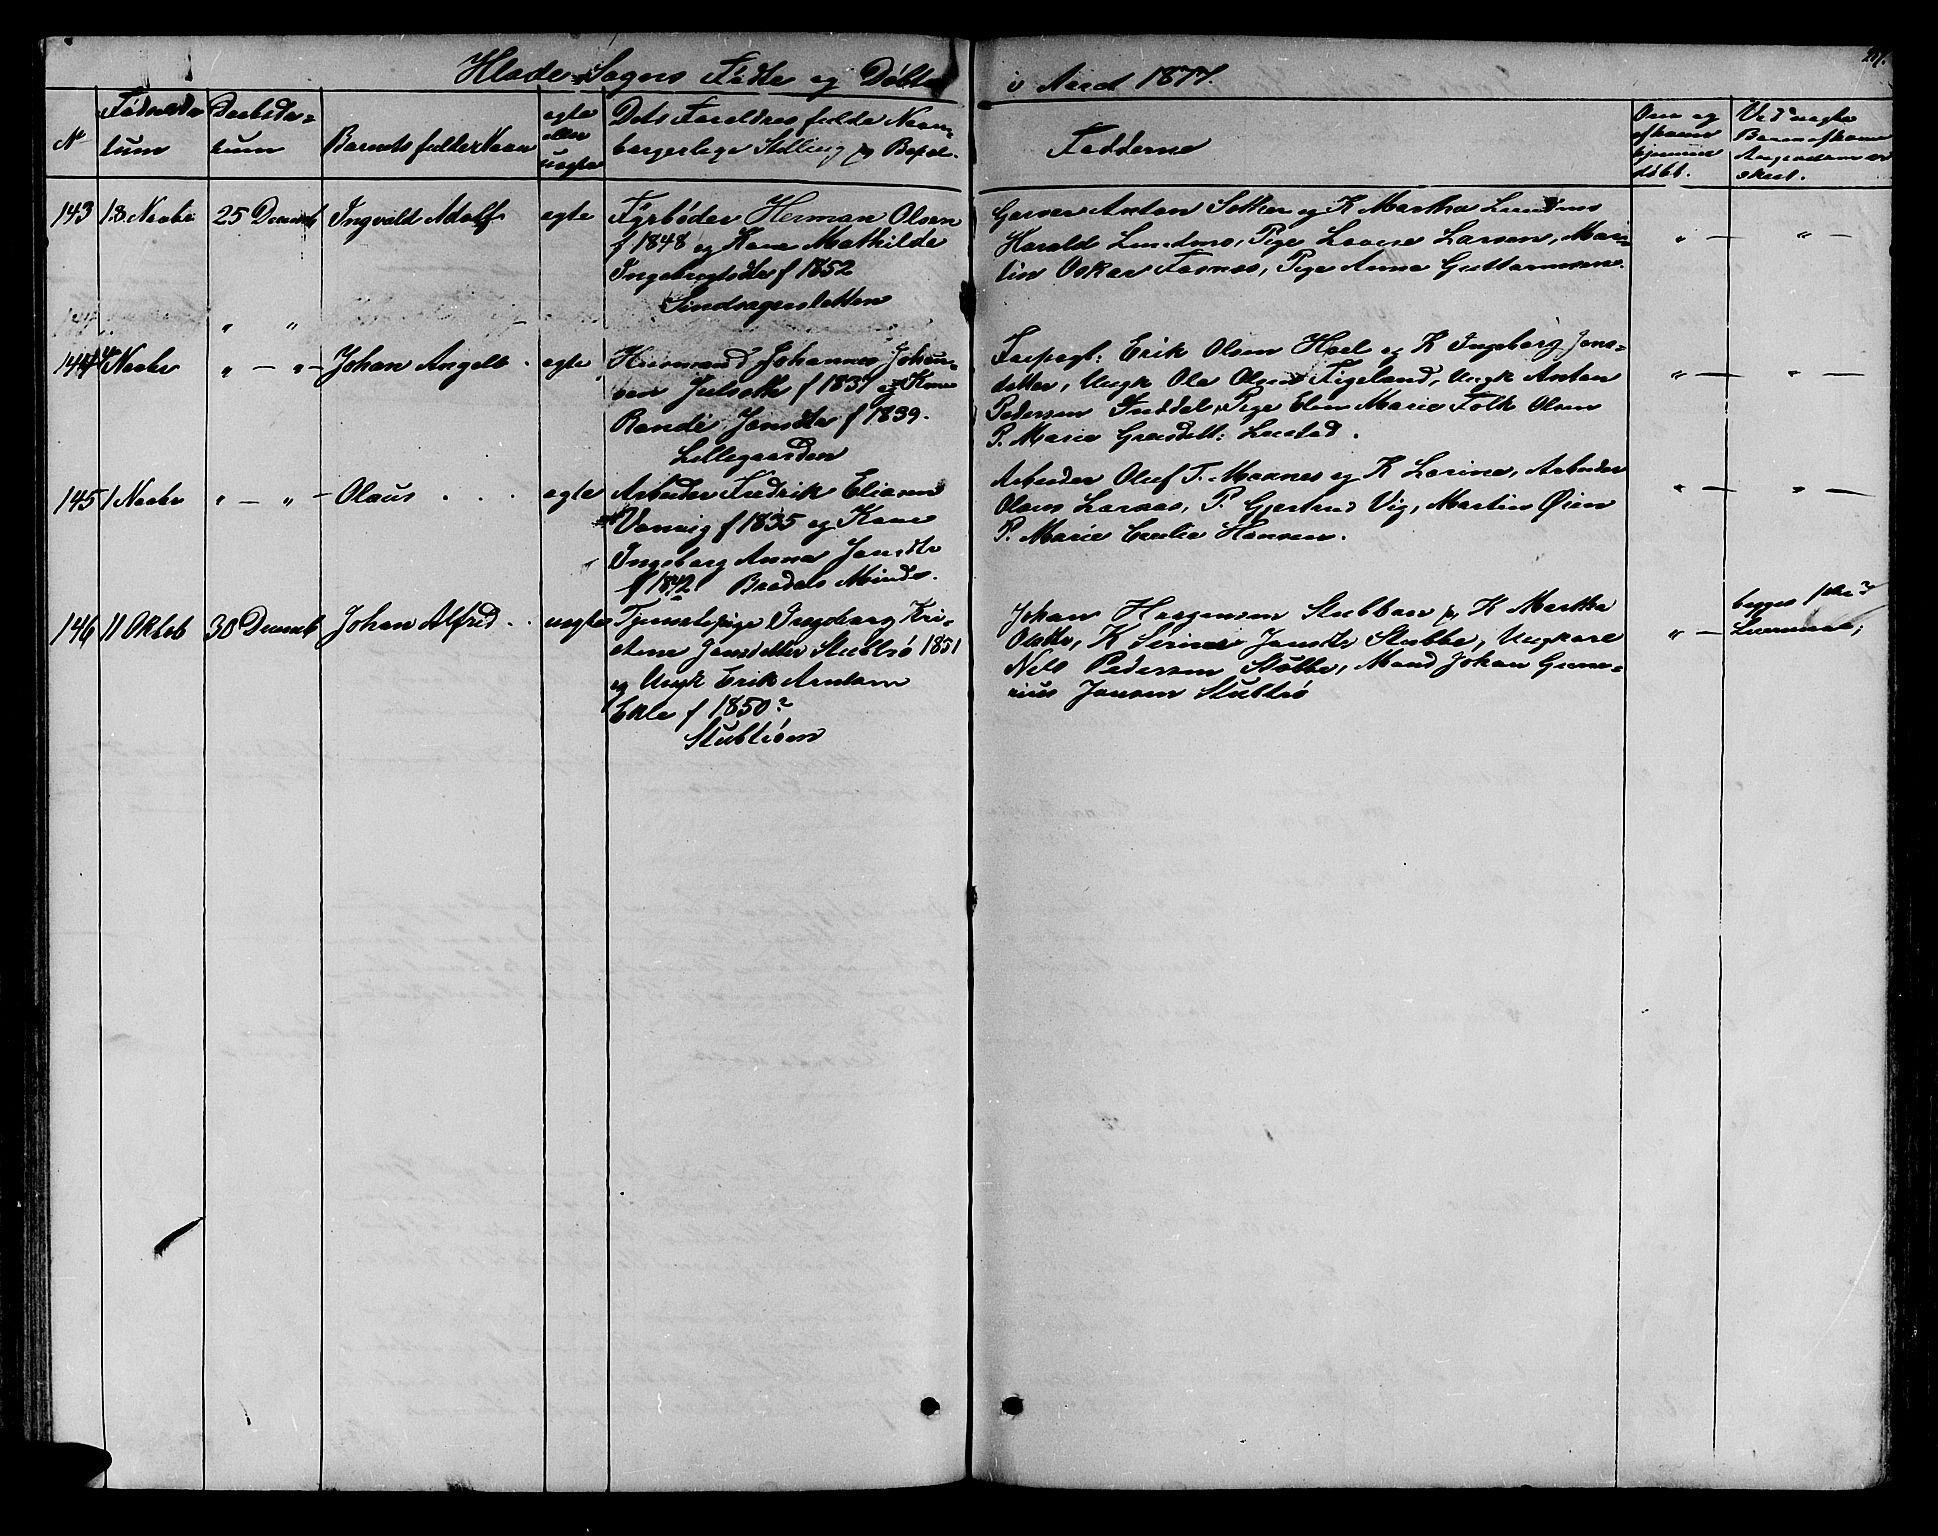 Hlade Sogns Fødte og Døbte i Aaret 1877.
N
Fødselsda
tum
Daabsda=
tum
Barnets fulde Navn
egte
eller
uegte
Dets Foreldres fulde Navn
borgerlige Stilling og Bopel.
Fadderne
Om og
af hvem
hjemme
døbt.
Ved uegte
Børn af hvem
Angivelsen er
skeet.
143
Novbr
25 Decemb
Ingvald Adolf
egte
Fyrbøder Herman Olsen
f 1848 og Kone Mathilde
Ingebrigtsdtr f 1852
Anton Solker og K Martha Lundmo
Harald Lundmo, Pige Lovise Larsen,
Oskar Fosnes, Pige Anna Guttormsen.
" —
" —
" "
144
Novbr
" — " —
Johan Angelt
egte
Huusmand Johannes Johan=
sen Julseth f 1837 og Kone
Randi Jonsdtr f 1839.
Lillegaarden
Erik Olsen Hoel og K Ingeborg Jons=
datter, Ungk Ole Olsen Figeland, Ungk Anton
Pedersen Inddal, Pige Elen Marie Falk Olsen
P. Marie
" —
" —
145
1 Novbr
" — " —
Olaus
egte
Arbeider Fredrik Eliasen
Vanvig f 1835 og Kone
Ingeborg Anna Jonsdtr
f 1842 Bradals Minde.
Arbeider Oluf T. Moxnes og K Lorina, Arbeider
Olaus Laraas, P. Gjertrud Vig, Martin Øien
P. Marie Hansen.
" —
" —
146
11 Oktob
30 Decemb
Johan Alfred
uegte
Tjenestepige Ingeborg Kri-
stine Jonsdatter Stubbrø 1851
og Ungk Erik Arntsen
Ekle f 1850?
Stubbrøen
Johan Haagensen Stubban og K Martha
Olsdtr, K Serine Jonsdtr Stubbe, Ungkarl
Nils Pedersen Stubbe, Mand Johan Gune=
rius Jonsen Stubbrø
" —
begges 1ste?
Leiermaal;